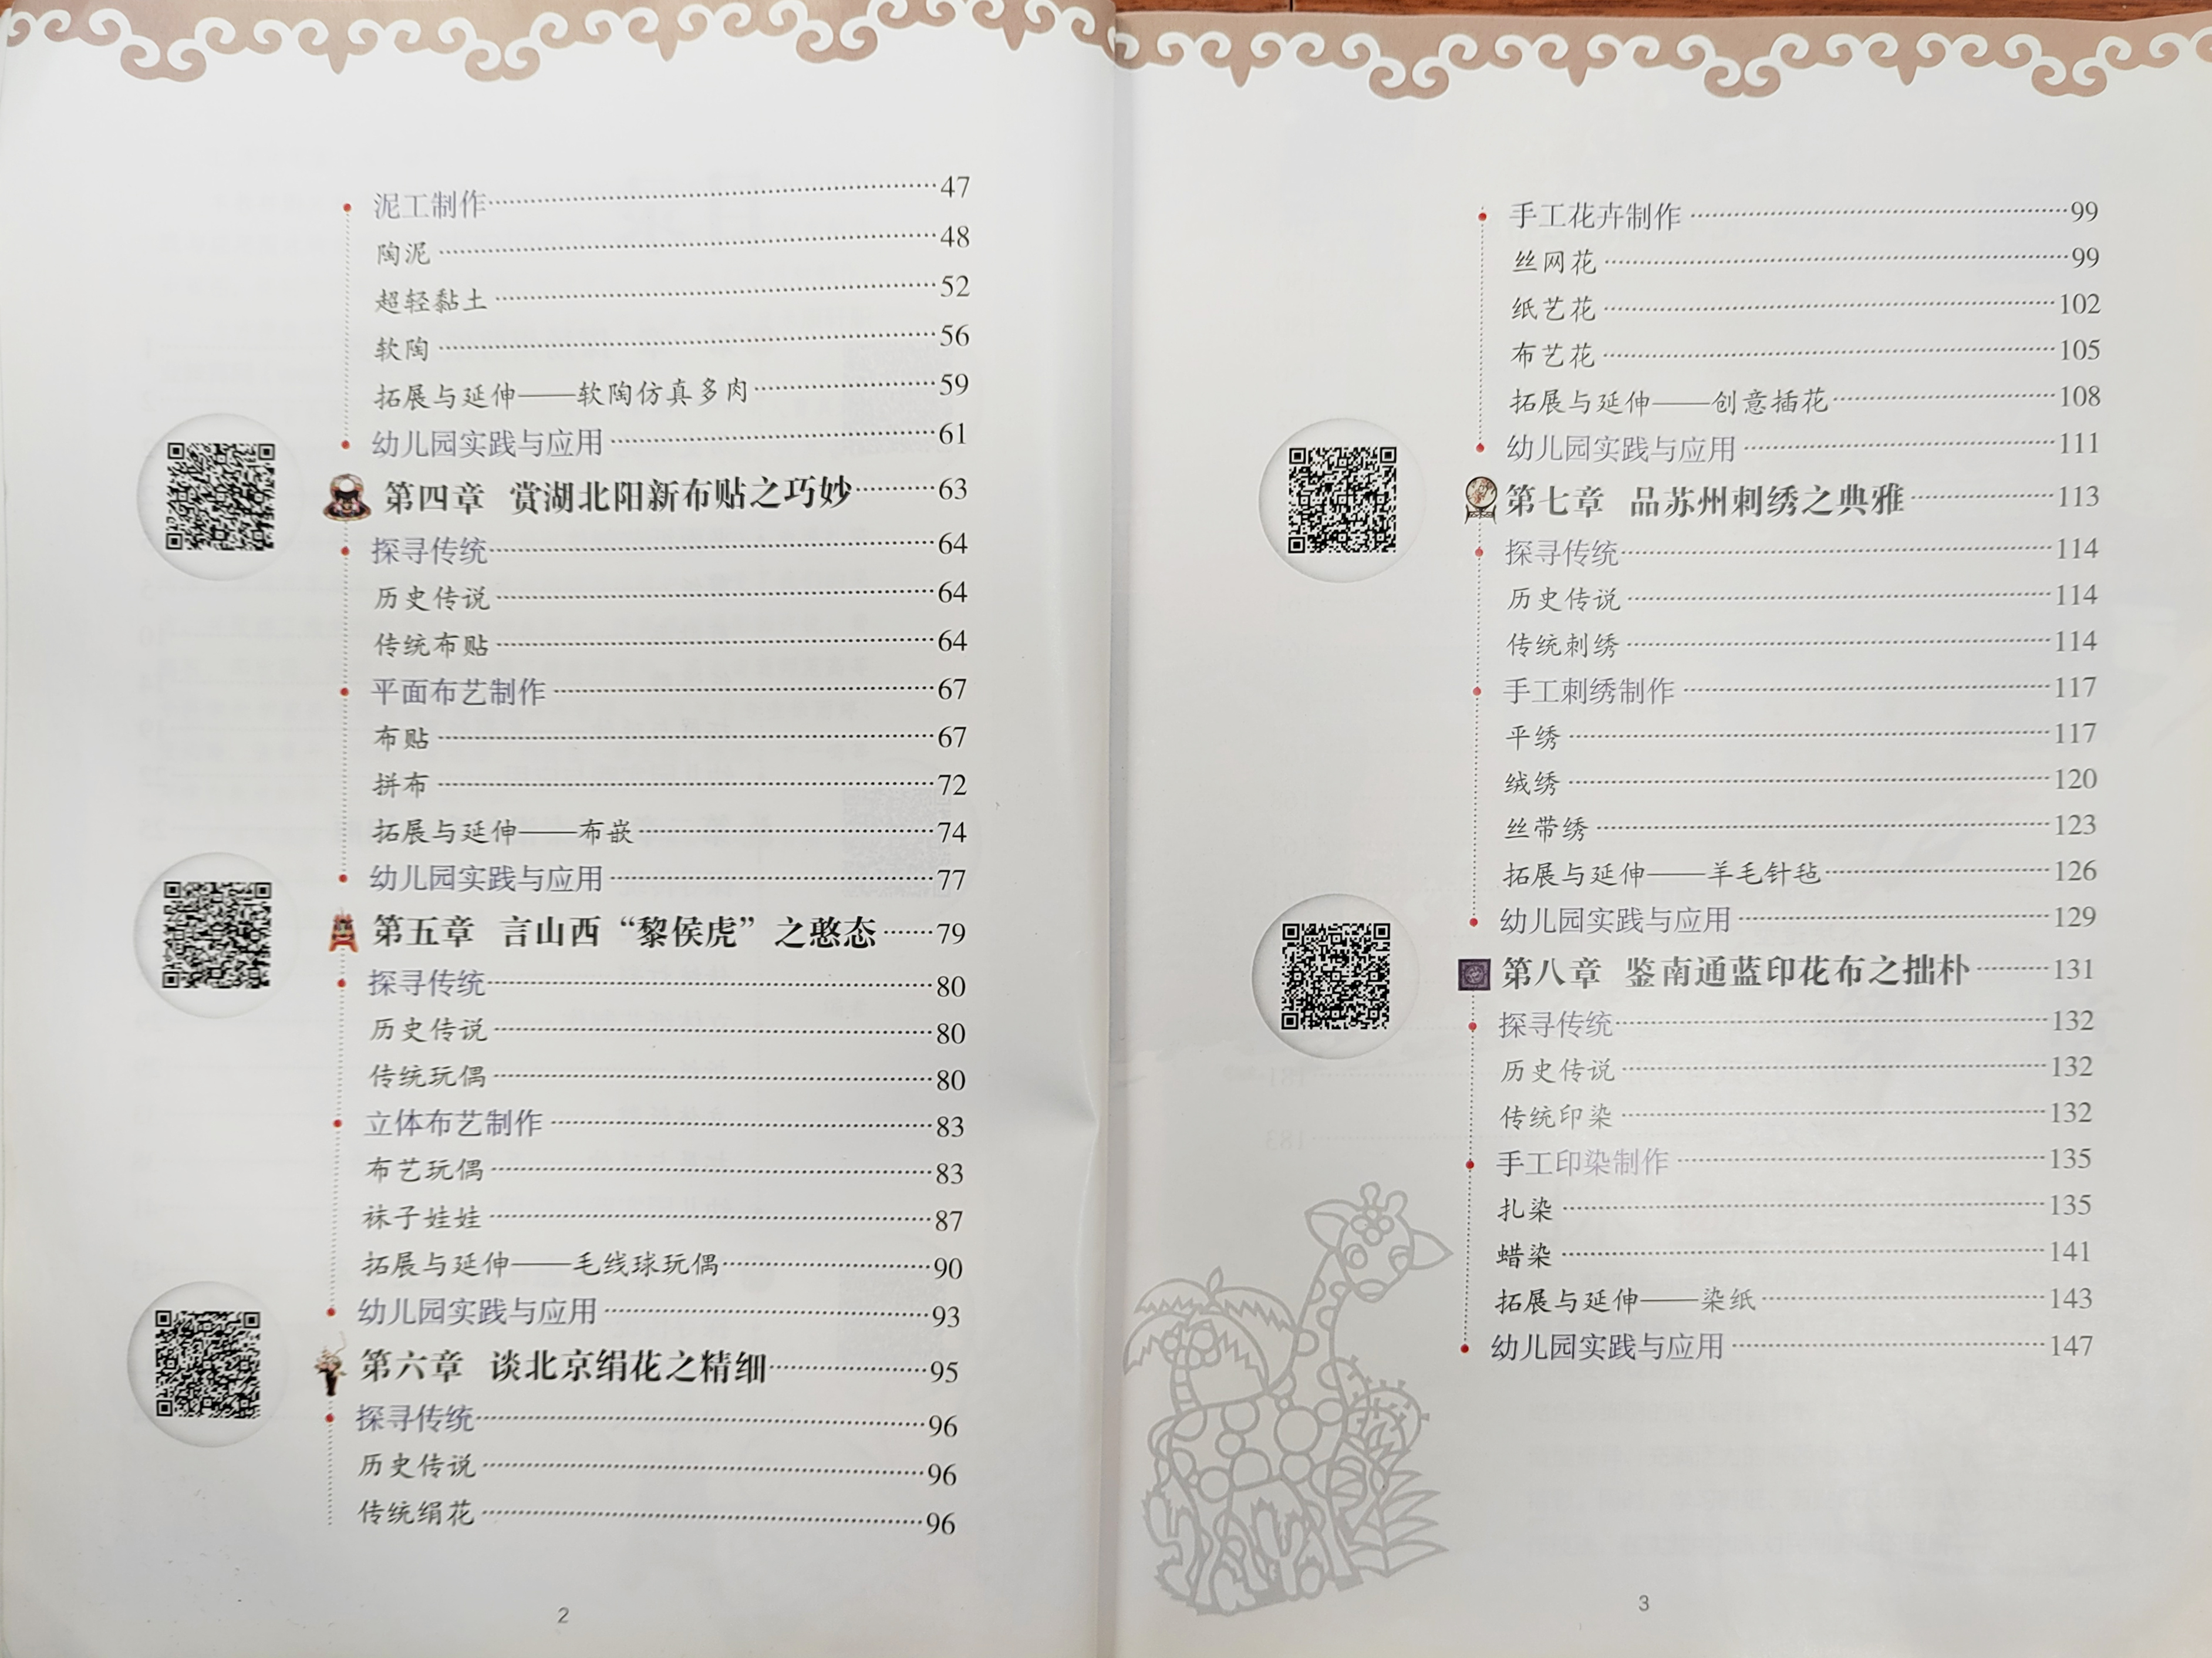 泥工制作……47
陶泥……48
超轻黏土……52
软陶……56
拓展与延伸——软陶仿真多肉……59
幼儿园实践与应用……61
第四章 赏湖北阳新布贴之巧妙……63
探寻传统……64
历史传说……64
传统布贴……64
平面布艺制作……67
布贴……67
拼布……72
拓展与延伸——布嵌……74
幼儿园实践与应用……77
第五章 言山西“黎侯虎”之憨态……79
探寻传统……80
历史传说……80
传统玩偶……80
立体布艺制作……83
布艺玩偶……83
袜子娃娃……87
拓展与延伸——毛线球玩偶……90
幼儿园实践与应用……93
第六章 谈北京绢花之精细……95
探寻传统……96
历史传说……96
传统绢花……96
2
手工花卉制作……99
丝网花……99
纸艺花……102
布艺花……105
拓展与延伸——创意插花……108
幼儿园实践与应用……111
第七章 品苏州刺绣之典雅……113
探寻传统……114
历史传说……114
传统刺绣……114
手工刺绣制作……117
平绣……117
绒绣……120
丝带绣……123
拓展与延伸——羊毛针毡……126
幼儿园实践与应用……129
第八章 鉴南通蓝印花布之拙朴……131
探寻传统……132
历史传说……132
传统印染……132
手工印染制作……135
扎染……135
蜡染……141
拓展与延伸——染纸……143
幼儿园实践与应用……147
3